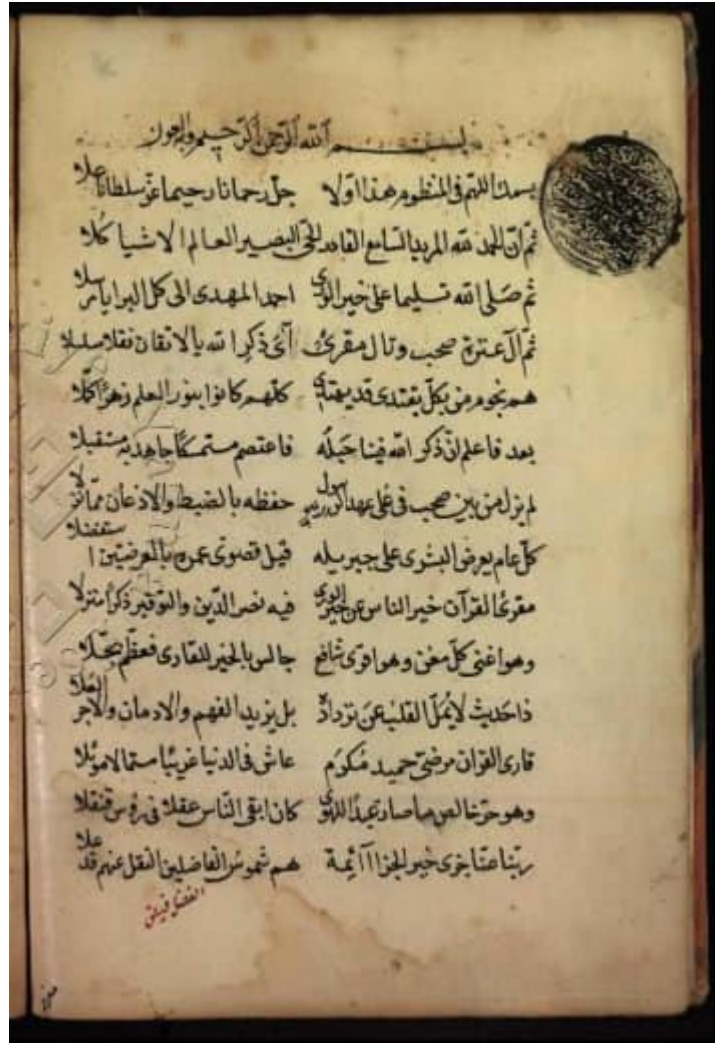 بســـــم الله الرحمن الرحيم وبه العون
بسمك اللهم فى المنظوم هذا اولا جلّ رحمانا رحيما عزّ سلطانا علا
ثمّ انّ الحمد لله المريد السامع القادر الحىّ البصير العالم الاشيا كلا
ثم صلى الله تسليما على خير الورى احمد المهدى الى كل البرايا مرسلا
ثمّ آل عترة صحب وتال مقرئ آىَ ذكر الله بالاتقان نقلا
هم نجوم من بكلّ يقتدى قد يهتدى كلّهم كانوا بنور العلم زهرًا كمّلا
بعد فاعلم انّ ذكر الله فينا حبله فاعتصم مستمسكًا جاهد به مستقبلا
لم يزل من بين صحب فى على عهد الرسول حفظه بالضبط والاذعان ممّا
كلّ عام يعرض البشرى على جبريله قيل قصوى عمره بالعرضتين ا
مقرئ القرآن خير الناس عن خير الورى فيه نصر الدّين والتوقير ذكرًا منزلا
وهو اغنى كلّ مغن وهو اقوى شافع جالس بالخير للقارى فعظّم
ذا حديث لا يُملّ القلب عن ترداده بل يزيد الفهم والادمان والاجر العلا
قارى القرآن مرضىّ حميد مكرم عاش فى الدنيا غريبًا
وهو حرّ خالص ما صار عبدًا للهوى كان ابقى النّاس عقلا فى
ربّنا عنّا جزى خير الجزا آئمة هم شموس الفاضلين النقل عنهم قد علا